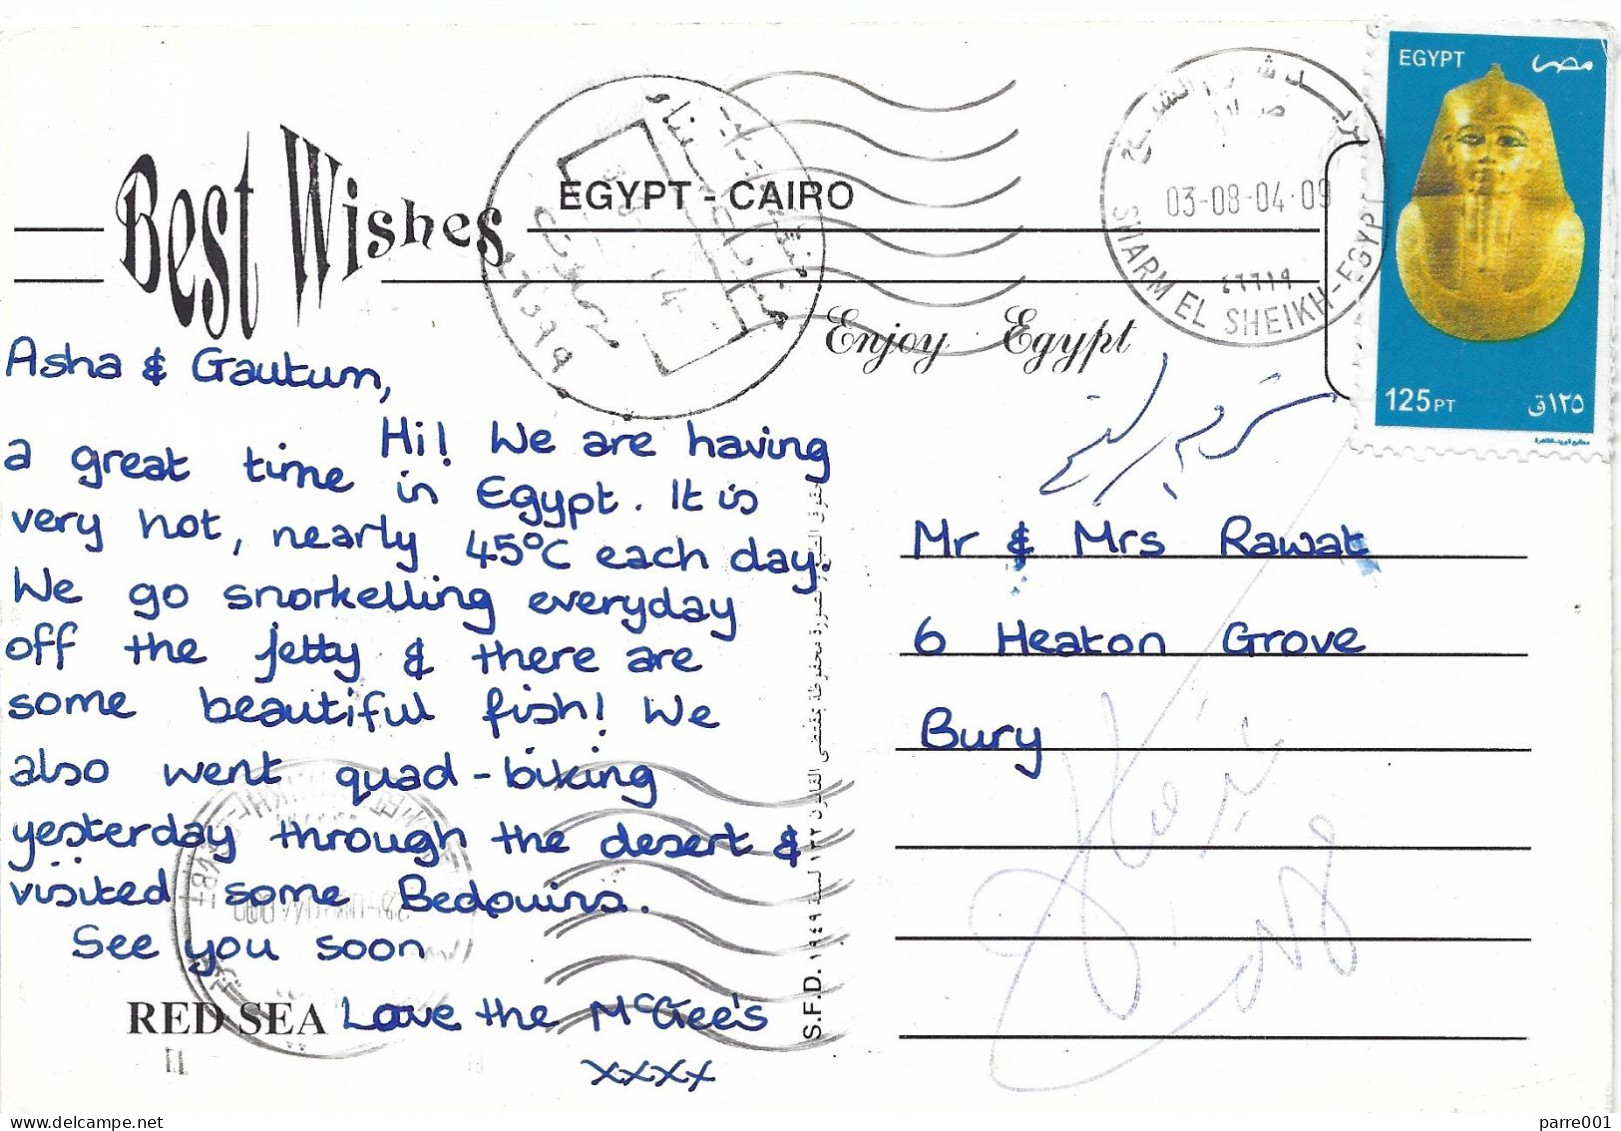 EGYPT مصر
03-08-04-09
٤٦٦١٩
SHARM EL SHEIKH-EGYPT
125 PT ١٢٥ ق
Best Wishes
EGYPT - CAIRO
Enjoy Egypt
Asha & Gautum,
Hi! We are having
a great time in Egypt. It is
very hot, nearly 45°C each day.
We go snorkelling everyday
off the jetty & there are
some beautiful fish! We
also went quad-biking
yesterday through the desert &
visited some Bedouins.
See you soon
Love the McGee's
xxxx
RED SEA
S.F.D. حقوق الطبع و الصورة محفوظة بمقتضى القانون ١٣٢ لسنة ١٩٤٩
Mr & Mrs Rawat
6 Heaton Grove
Bury
delcampe.net
parre001